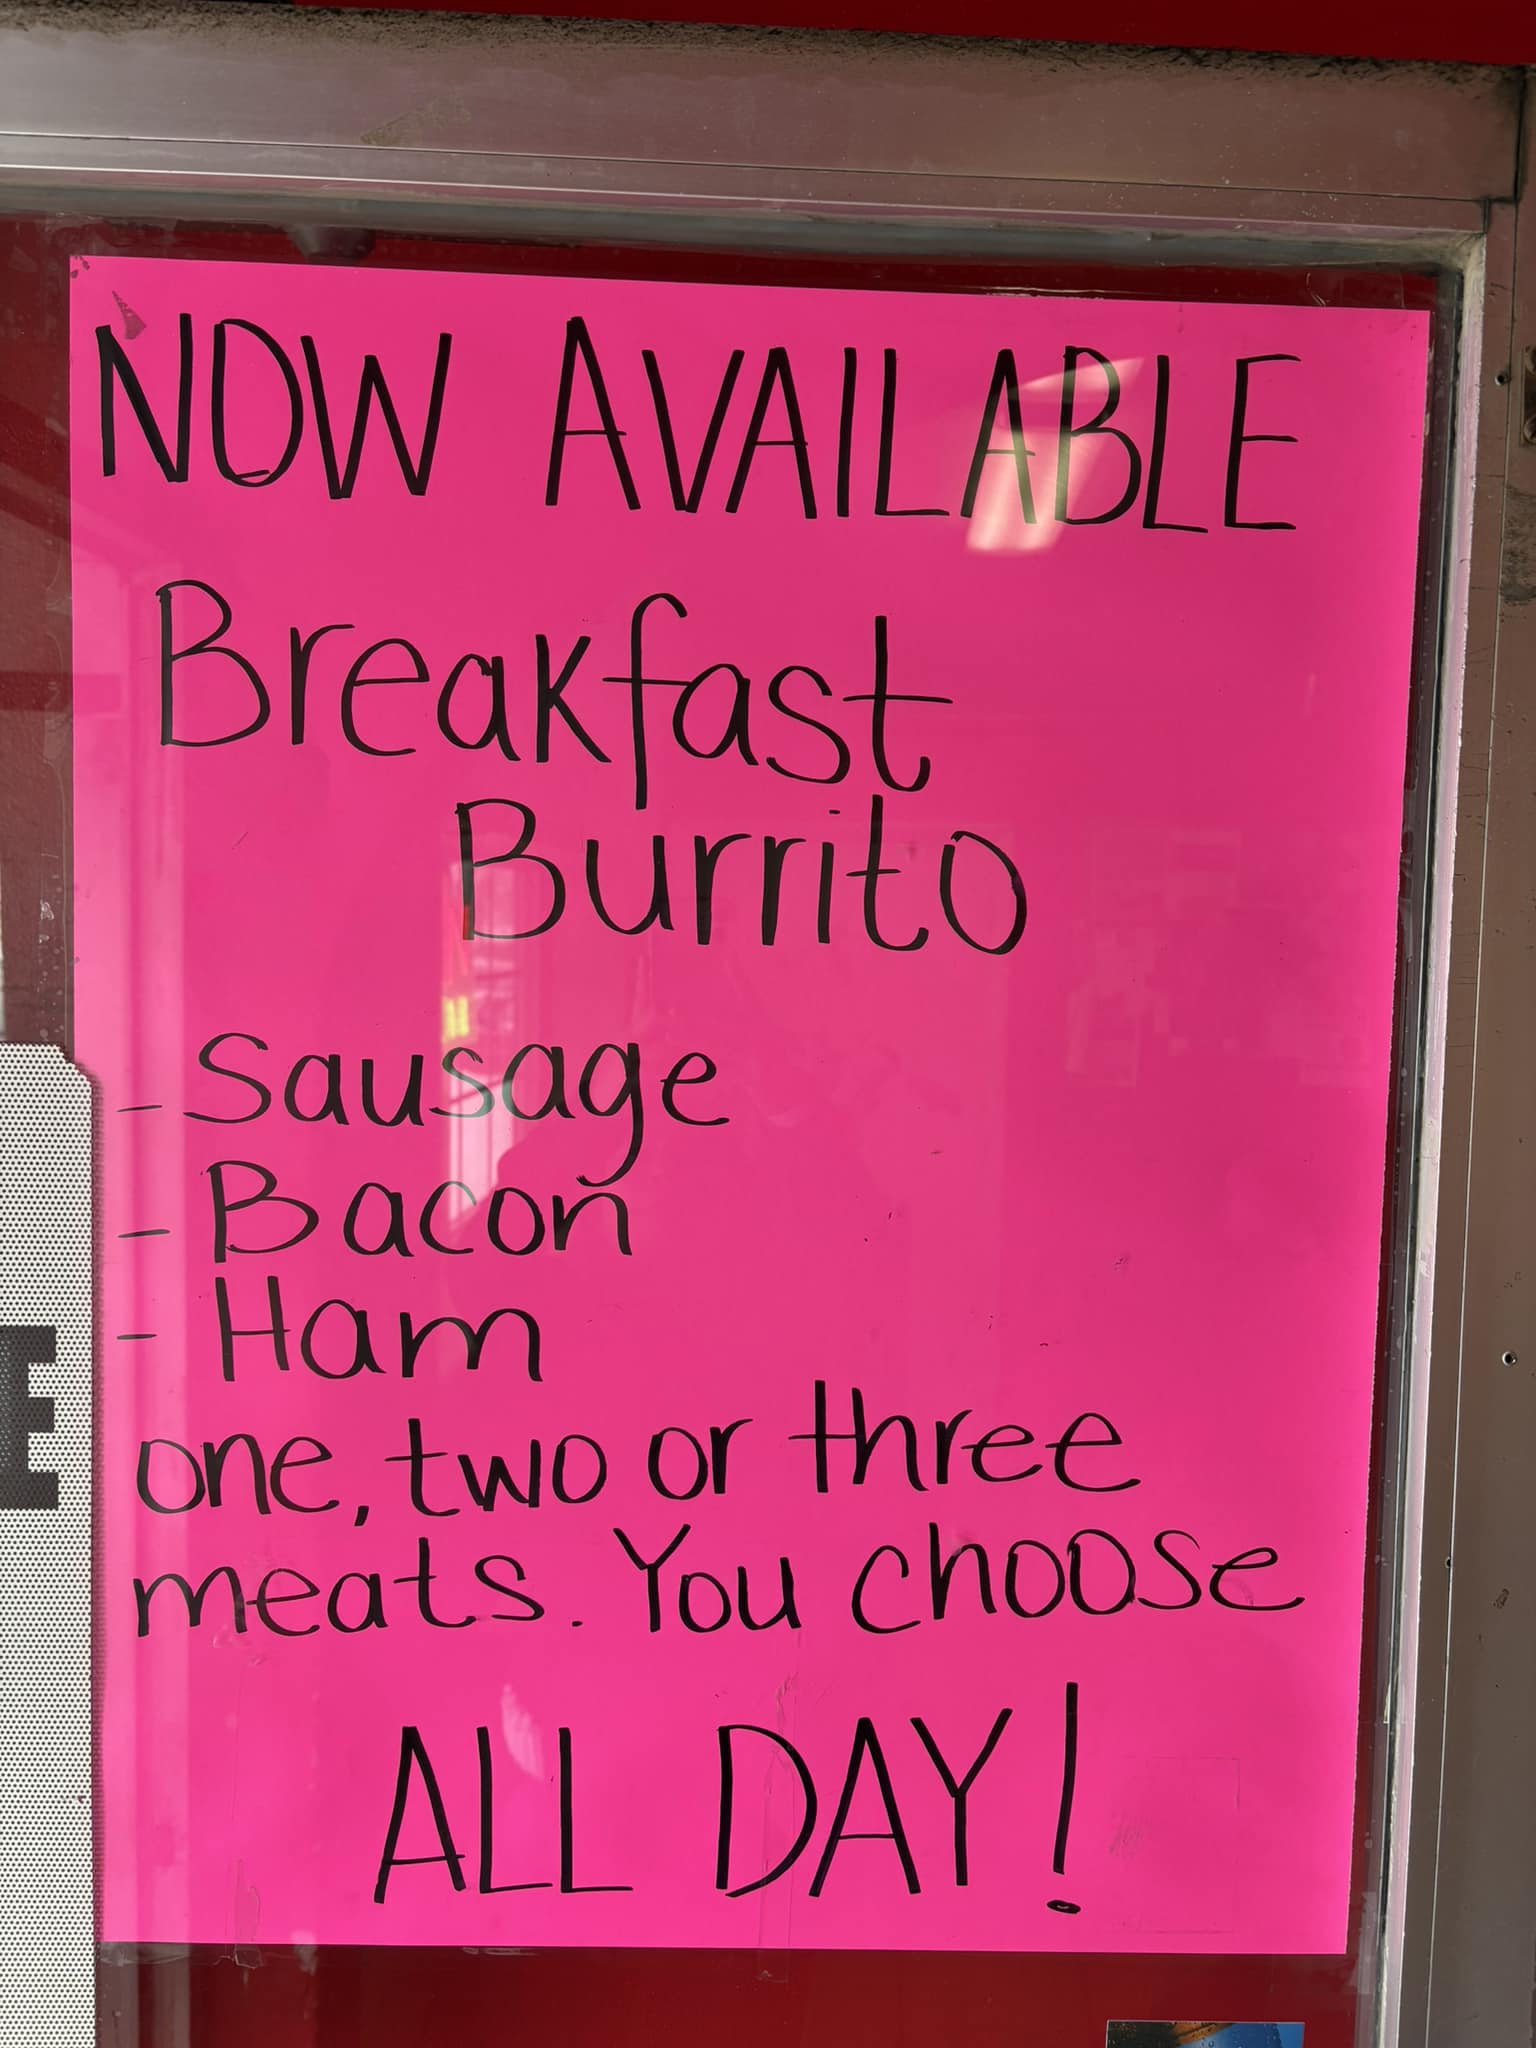 NOW AVAILABLE
Breakfast
Burrito
- Sausage
- Bacon
- Ham
one, two or three
meats. You choose
ALL DAY!
E